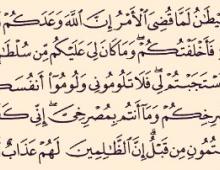 يْطَٰنُ لَمَّا قُضِىَ ٱلْأَمْرُ إِنَّ ٱللَّهَ وَعَدَكُمْ
فَأَخْلَفْتُكُمْ ۖ وَمَا كَانَ لِىَ عَلَيْكُم مِّن سُلْطَٰ
سْتَجَبْتُمْ لِى ۖ فَلَا تَلُومُونِى وَلُومُوٓا۟ أَنفُسَكُ
رِخِكُمْ وَمَآ أَنتُم بِمُصْرِخِىَّ ۖ إِنِّى كَفَ
تُمُونِ مِن قَبْلُ ۗ إِنَّ ٱلظَّٰلِمِينَ لَهُمْ عَذَابٌ